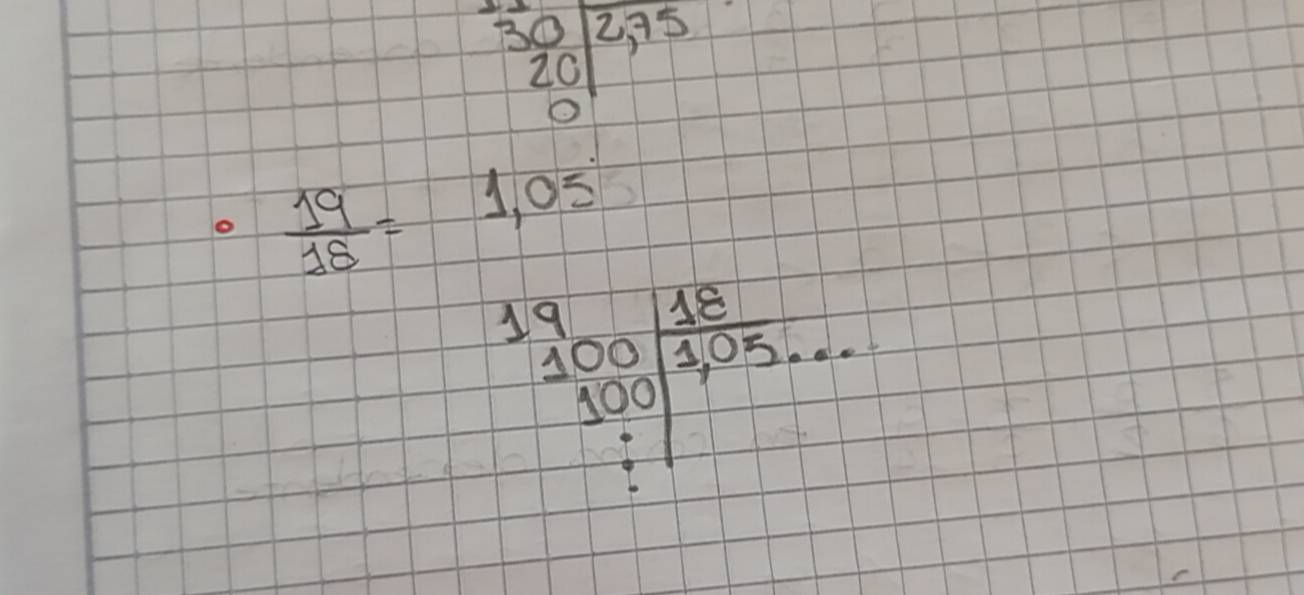 30 2,75
20
0
19/18 = 1,05
19 18
100 1,05...
100